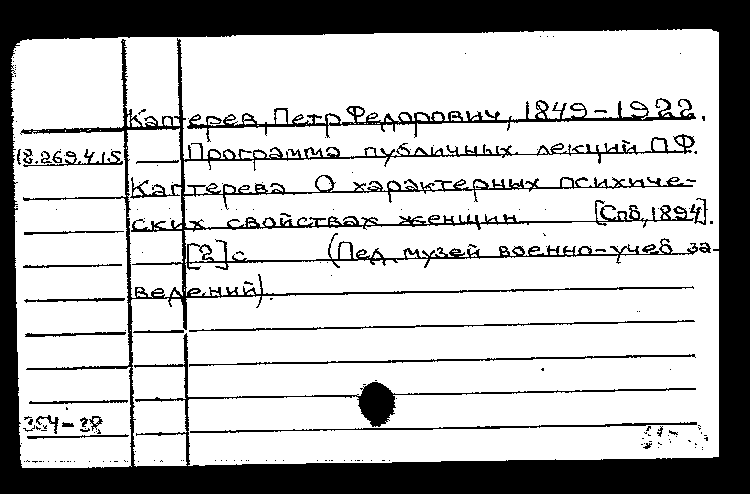 Каптерев, Петр Федорович, 1849-1922.
18.269.4.15 Программа публичных лекций П.Ф.
Каптерева О характерных психиче-
ских свойствах женщин [Спб, 1894].
[2]с (Пед. музей военно-учеб за-
ведений).
354-38